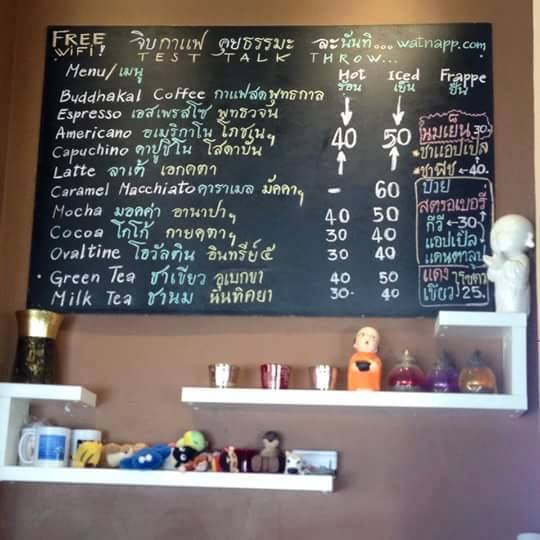 FREE WiFi! จิบกาแฟ คุยธรรมะ ละนันทิ...watnapp.com
TEST TALK THROW...
Menu/เมนู Hot Iced Frappe
ร้อน เย็น ปั่น
Buddhakal Coffee กาแฟสดพุทธกาล
Espresso เอสเพรสโซ่ พุทธวจน
Americano อเมริกาโน 40 50 นมเย็น 30
Capuchino คาปูชิโน โสดาบัน ชาแอปเปิ้ล
Latte ลาเต้ เอกคตา ชาพีช ←40.
Caramel Macchiato คาราเมล มัคคาฯ - 60 บ๊วย
Mocha มอคค่า อานาปาฯ 40 50 สตรอเบอรี่
Cocoa โกโก้ กายคตาฯ 30 40 กีวี ←30
Ovaltine โอวัลติน อินทรีย์๕ 30 40 แอปเปิ้ล
แคนตาลูป
Green Tea ชาเขียว อุเบกขา 40 50 แดง
Milk Tea ชานม นันทิคยา 30 40 เขียว 25.